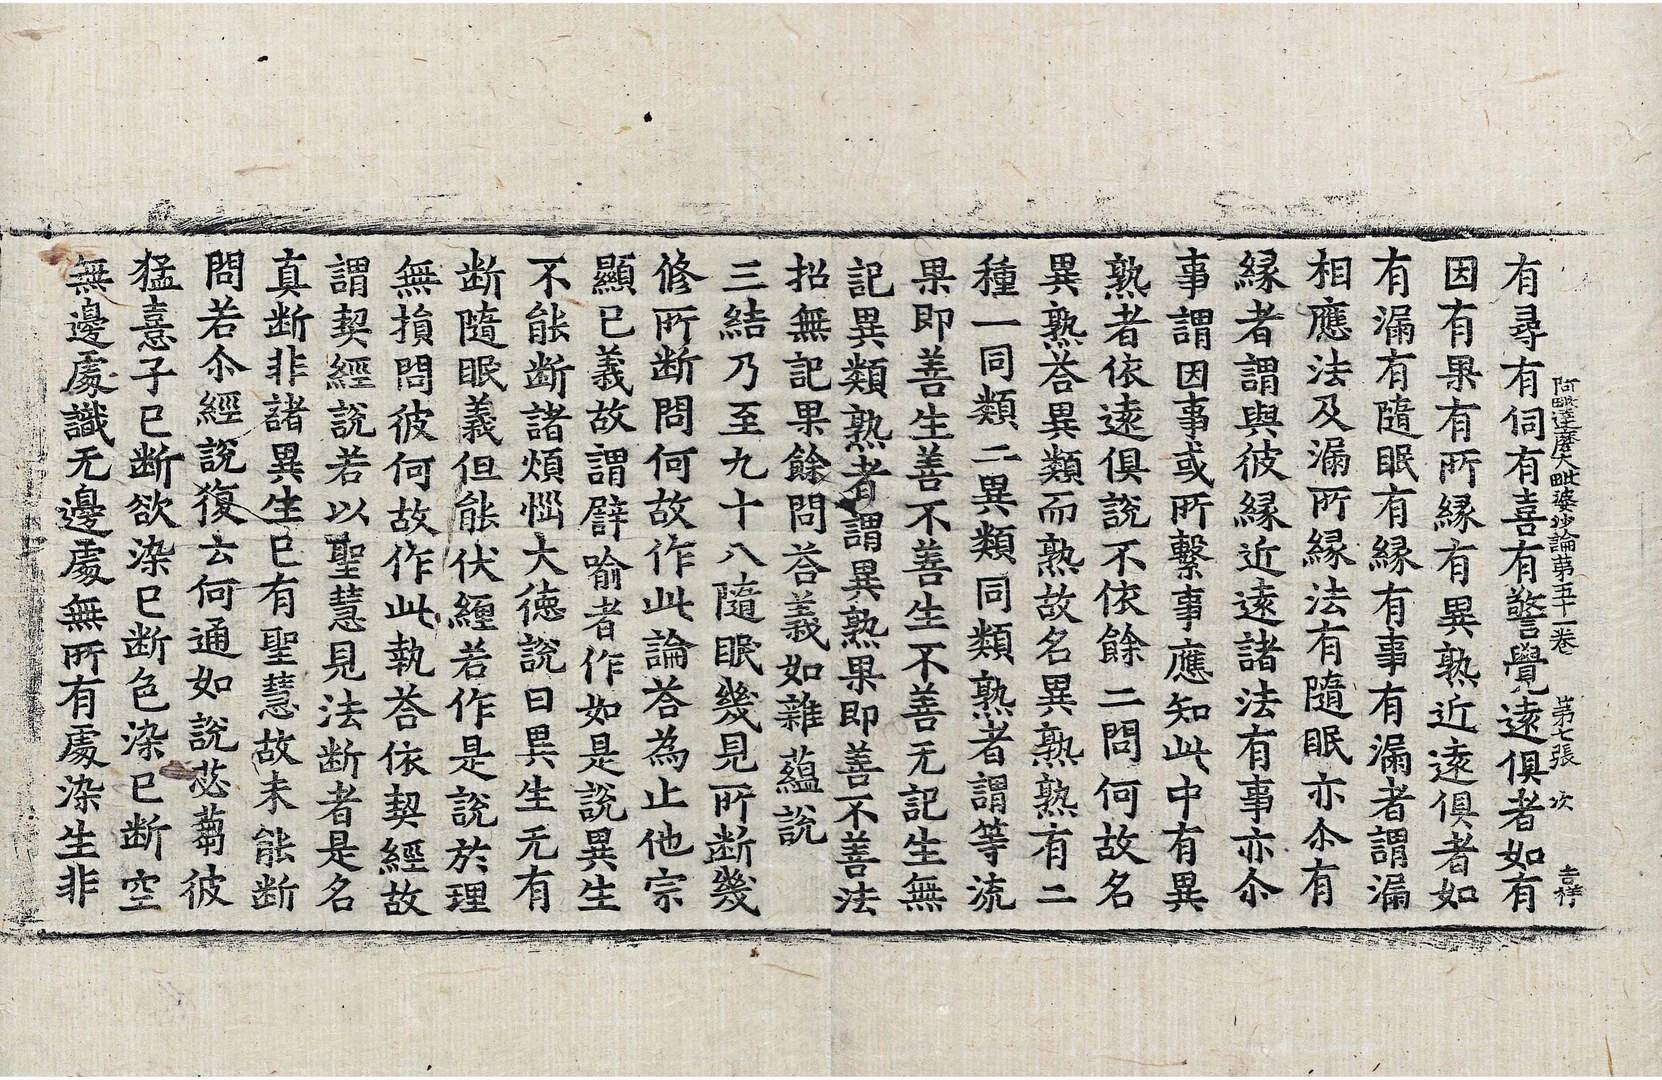 阿毗達磨大毗婆沙論第五十一卷　第七張　次　吉祥
有尋有伺有喜有警覺遠俱者如有
因有果有所縁有異熟近遠俱者如
有漏有隨眠有縁有事有漏者謂漏
相應法及漏所縁法有隨眠亦尒有
縁者謂與彼縁近遠諸法有事亦尒
事謂因事或所繫事應知此中有異
熟者依遠俱說不依餘二問何故名
異熟荅異類而熟故名異熟熟有二
種一同類二異類同類熟者謂等流
果即善生善不善生不善无記生無
記異類熟者謂異熟果即善不善法
招無記果餘問荅義如雜蘊說
三結乃至九十八隨眠幾見所断幾
修所断問何故作此論荅為止他宗
顯已義故謂譬喻者作如是說異生
不能断諸煩惱大德說曰異生无有
断隨眠義但能伏纏若作是說於理
無損問彼何故作此執荅依契經故
謂契經說若以聖慧見法断者是名
真断非諸異生已有聖慧故未能断
問若尒經說復云何通如說苾蒭彼
猛憙子已断欲染已断色染已断空
無邊處識无邊處無所有處染生非